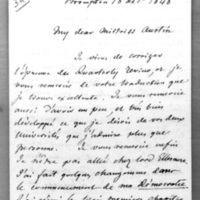 Brompton 18 Oct. 1840
My dear Mistress Austin
Je viens de corriger
l'épreuve du Quarterly Review, et je
vous remercie de votre traduction que
je trouve excellente. Je vous remercie
aussi d'avoir un peu, et très bien
développé ce que je disois de vos deux
Universités que j'admire plus que
personne. Je vous remercie enfin
de n'être pas allé chez lord
J'ai fait quelques changemens dans
le commencement de ma Démocratie